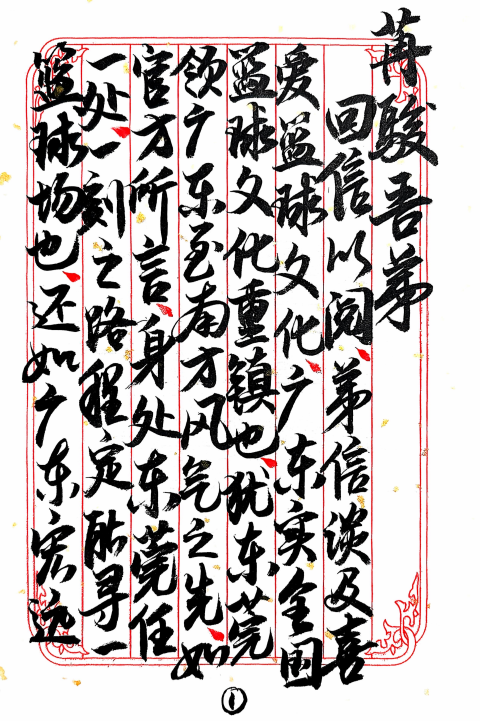 苒駿吾弟
回信以阅、弟信谈及喜
爱篮球文化、广东实全国
篮球文化重镇也、犹东莞
领广东至南方风气之先、如
官方所言、身处东莞任
一处、一刻之路程定能寻一
篮球场也、还如广东宏远
①